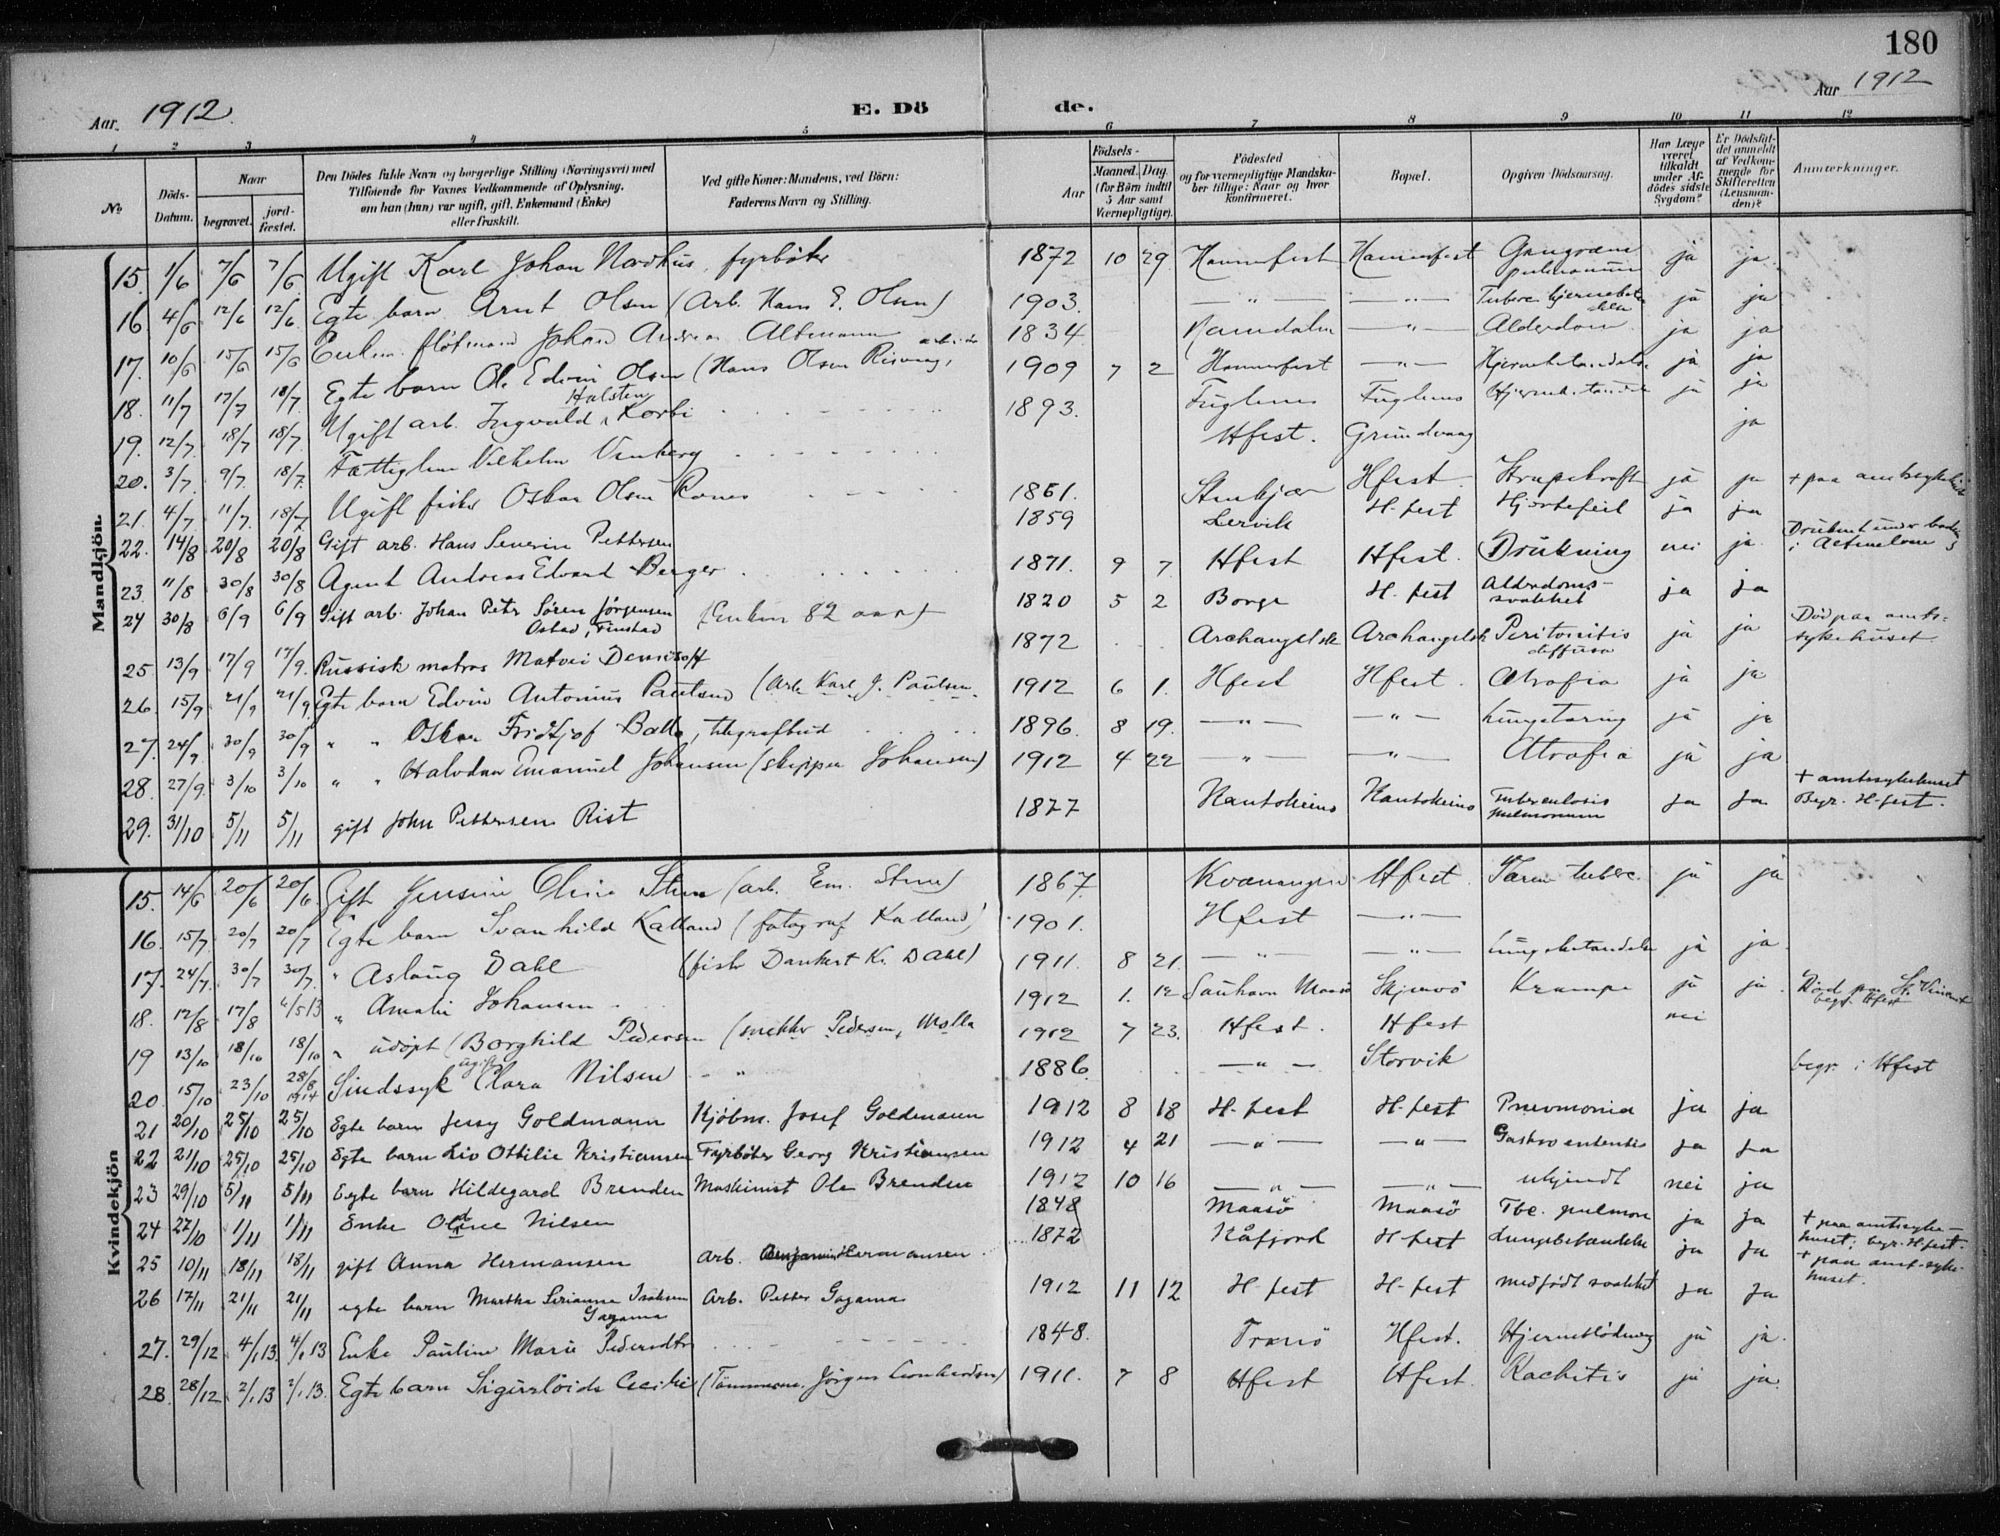 180
Aar 1912.
E. Döde.
Aar 1912
1 2 3 4 5 6 7 8 9 10 11 12
No.
Döds-Datum.
Naar
begravet.
jord-fæstet.
Den Dödes fulde Navn og borgerlige Stilling (Næringsvei) med
Tilföiende for Voxnes Vedkommende af Oplysning,
om han (hun) var ugift, gift, Enkemand (Enke)
eller fraskilt.
Ved gifte Koner: Mandens, ved Börn:
Faderens Navn og Stilling.
Födsels-
Aar
Maaned. Dag.
(for Börn indtil
5 Aar samt
Værnepligtige).
Födested
og for værnepligtige Mandska-
ber tillige: Naar og hvor
konfirmeret.
Bopæl.
Opgiven Dödsaarsag.
Har Læge
været
tilkaldt
under Af-
dödes sidste
Sygdom?
Er Dödsfal-
det anmeldt
af Vedkom-
mende for
Skifteretten
(Lensman-
den)?
Anmærkninger.
Mandkjön.
15. 1/6 7/6 7/6 Ugift Karl Johan , fyrbøter 1872 10 29 Hammerfest Hammerfest Gangræna pulmonum ja ja
16 4/6 12/6 12/6 Egte barn Arnt Olsen (Arb. Hans E. Olsen) 1903. — " — — " — ja ja
17. 10/6 15/6 15/6 Enkem. Johan Andreas Altmann 1834 Namdalen — " — Alderdom ja ja
18. 11/7 17/7 18/7 Egte barn Ole Edvin Olsen (Hans Olsen 1909 7 2 Hammerfest — " — ja ja
19. 12/7 18/7 18/7 Ugift arb. Ingvald Halsten Korbi 1893. Fuglenes Fuglenes ja ja
20. 3/7 9/7 18/7 Vilhelm Vinberg Hfest. Grundvaag ja
21. 4/7 11/7 18/7 Ugift fisker Oskar Olsen 1861. Stenkjær Hfest Strupekræft ja ja + paa amtssykehus
22. 14/8 20/8 20/8 Gift arb. Hans Severin Pettersen 1859 Lervik H-fest Hjertefeil ja ja
23. 11/8 30/8 30/8 Agent Andreas Edvard Berger 1871. 9 7 Hfest Hfest. Drukning nei ja Druknet under
24 30/8 6/9 6/9 Gift arb. Johan Peter Søren Jørgensen Ostad, Finstad (Enkem 82 aar) 1820 5 2 Borge H-fest Alderdoms-svakhet ja ja
25. 13/9 17/9 17/9. Russisk matros Matvei Denisoff 1872 Archangelsk Archangelsk Peritonitis diffusa ja ja Död paa amts-sykehuset
26. 15/9 21/9 21/9 Egte barn Edvin Antonius Paulsen (Arb. Karl J. Paulsen. 1912 6 1. Hfest Hfest. Atrofia ja ja
27. 24/9 30/9 30/9 " " Oskar Fridtjof Balto, telegrafbud 1896. 8 19. — " — — " — Lungetæring ja ja
28. 27/9. 3/10 3/10 " " Halvdan Emanuel Johansen (skipper Johansen) 1912 4 22 — " — — " — Atrofia ja ja
29. 31/10 5/11 5/11 gift John Pettersen Rist 1877 Kautokeino Kautokeino Tuberculosis pulmonum ja ja + amtssykehuset Begr. H-fest.
Kvindekjön
15. 14/6 20/6 20/6 Gift Jensine Oline Steen (arb. Em. Steen) 1867. Kvænangen Hfest. Tarm tuberc. ja ja
16. 15/7 20/7 20/7 Egte barn Svanhild Kalland (fotograf Kalland) 1901. Hfest — " —
17. 24/7. 30/7 30/7. " Aslaug Dahl (fisk. Dankert Kr. Dahl) 1911. 8 21. — " — — " — Lungebetændelse ja ja
18. 12/8 17/8 4/5 13 " Amalie Johansen 1912 1. 12 Havøysund Maasø Krampe ja ja. Död paa St. Vincent begr. Hfest
19 13/10 18/10 18/10 " udøpt (Borghild Pedersen (snekker Pedersen, Molla 1912 7 23. Hfest. Hfest nei
20. 15/10 23/10 28/8 1914 Sindssyk ugift Clara Nilsen - " 1886. — " — Storvik begr. i Hfest
21 20/10 25/10 25/10 Egte barn Jenny Goldmann Kjøbm. Josef Goldmann 1912 8 18 H-fest H-fest Pnevmonia ja ja
22 21/10 25/10 25/10 Egte barn Liv Ottilie Kristiansen Fyrbøter Georg Kristiansen 1912 4 21 — " — — " — Gastro enteritis ja ja
23 29/10 5/11 5/11 Egte barn Hildegard Brenden Maskinist Ole Brenden 1912 10 16 — " — — " — ukjendt nei ja
24 27/10 1/11 1/11 Enke Nilsen 1848 Maasö Maasö Tbc. pulmon ja ja + paa amtssyke-huset; begr. H-fest.
25 10/11 18/11 18/11 gift Anna Hermansen Arb. Benjamin Hermansen 1872 Kåfjord H-fest Lungebetændelse ja ja + paa amt-syke-huset.
26 17/11 21/11 21/11 egte barn Martha Sirianna Isaksen Gagama Arb. Petter Gagama 1912 11 12 H-fest H-fest medfödt svakhet ja ja
27. 29/12 4/1 13 4/1 13 Enke Pauline Marie Pedersdtr 1848. Tromsö Hfest. Hjerneblödning ja ja.
28. 28/12 2/1 13 2/1 13. Egte barn Cecilie (Tömmerm. Jörgen Leonhardsen) 1911. 7 8 Hfest Hfest. Rachitis ja ja.